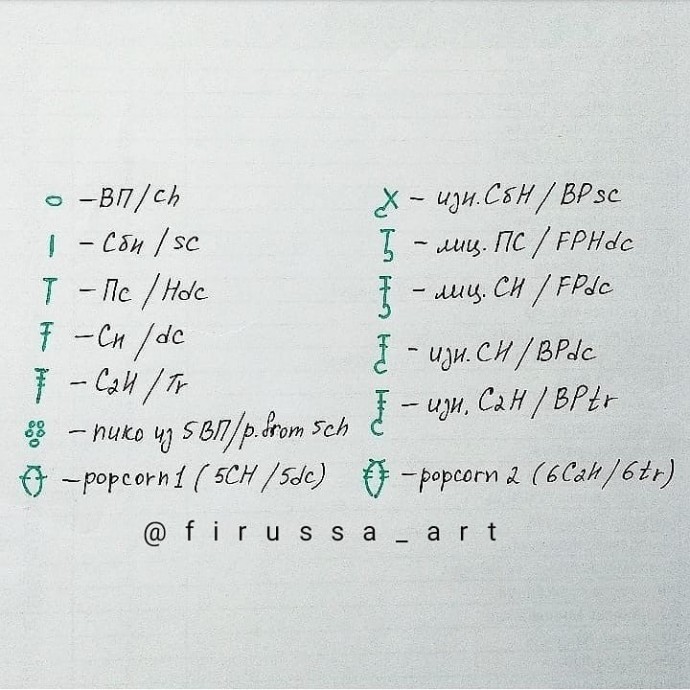 – ВП / ch
– Сбн / sc
– Пс / Hdc
– Сн / dc
– С2Н / Tr
– пико из 5ВП / p.from 5ch
– popcorn 1 ( 5СН / 5dc)
– изн. СбН / BPsc
– лиц. ПС / FPHdc
– лиц. СН / FPdc
– изн. СН / BPdc
– изн. С2Н / BPtr
– popcorn 2 (6С2Н / 6tr)
@firussa_art